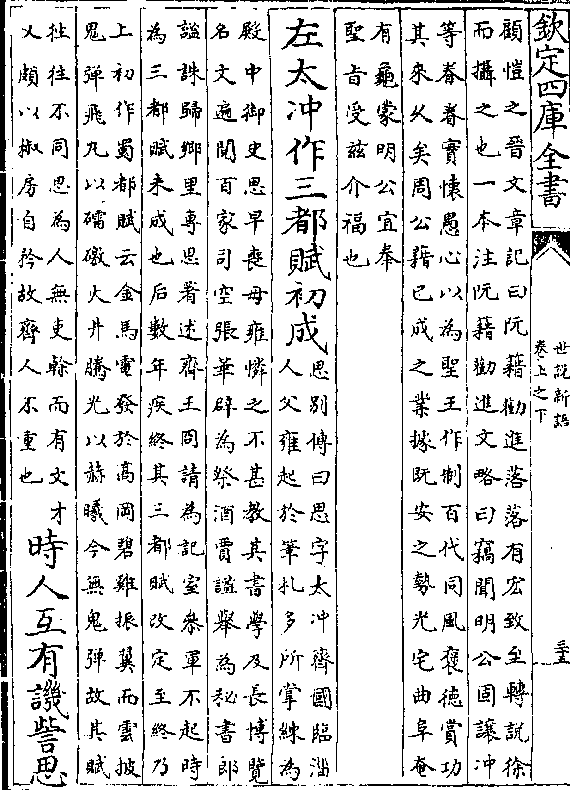 欽定四庫全書
世說新語
卷上之下
顧愷之晉文章記曰阮籍勸進落落有宏致至轉說徐
而攝之也一本注阮籍勸進文略曰竊聞明公固讓沖
等眷眷實懷愚心以為聖王作制百代同風褒德賞功
其來久矣周公藉已成之業據既安之勢光宅曲阜奄
有龜蒙明公宜奉
聖旨受茲介福也
左太冲作三都賦初成
思別傳曰思字太冲齊國臨淄
人父雍起於筆札多所掌練為
殿中御史思早喪母雍憐之不甚教其書學及長博覽
名文遍閱百家司空張華辟為祭酒賈謐舉為秘書郎
謐誅歸鄉里專思著述齊王冏請為記室參軍不起時
為三都賦未成也后數年疾終其三都賦改定至終乃
上初作蜀都賦云金馬電發於高岡碧雞振翼而雲披
鬼彈飛丸以礌礉火井騰光以赫曦今無鬼彈故其賦
往往不同思為人無吏榦而有文才
又頗以椒房自矜故齊人不重也
時人互有譏訾思